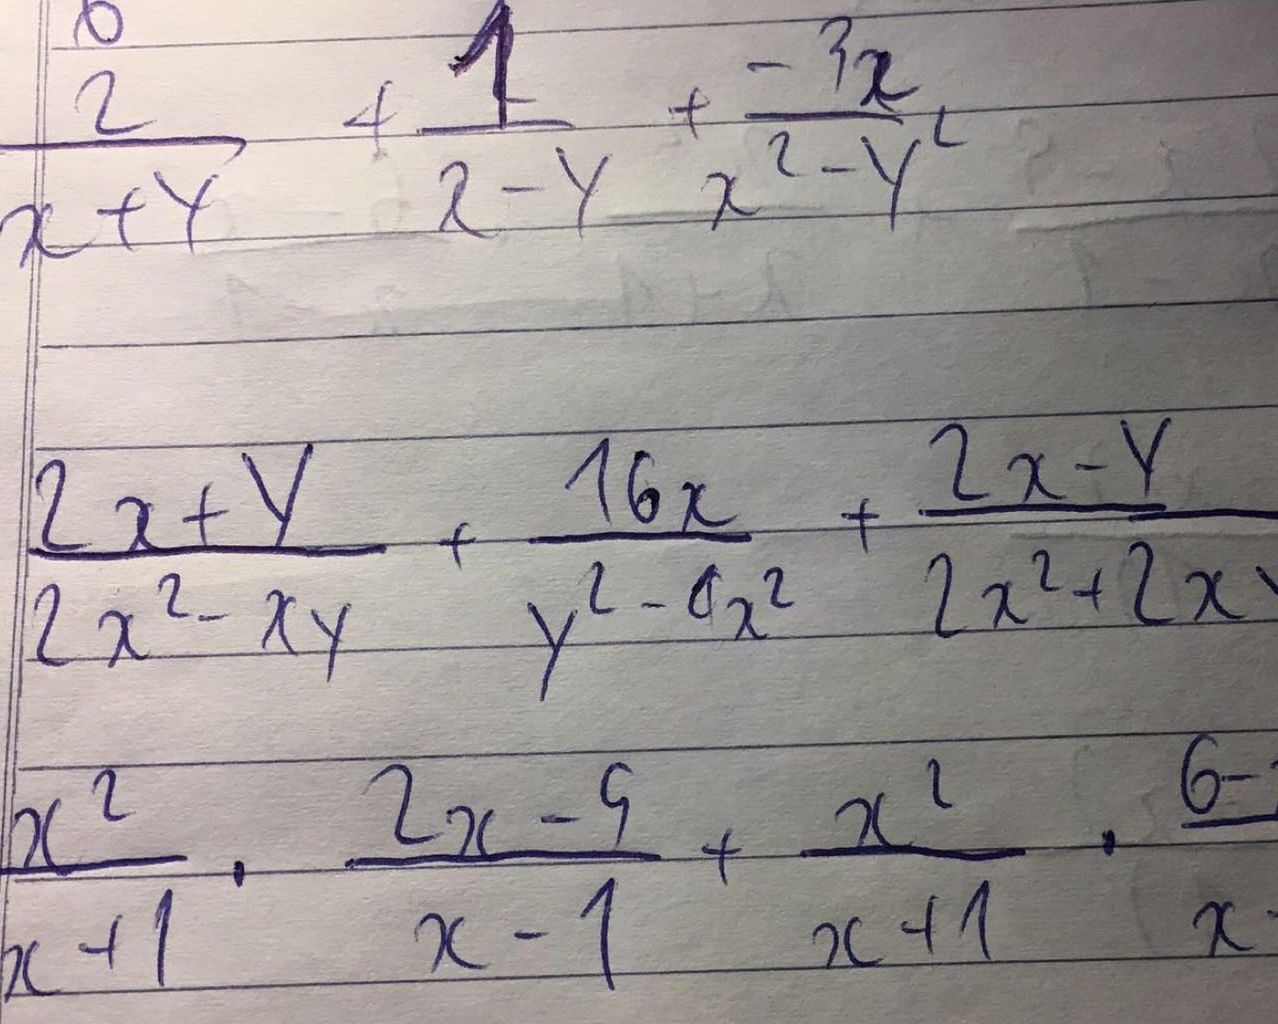 2/(x+Y) + 1/(x-Y) + -3x/(x²-Y²)
(2x+Y)/(2x²-xy) + 16x/(y²-4x²) + (2x-Y)/(2x²+2xY
x²/(x+1) · (2x-9)/(x-1) + x²/(x+1) · 6-/x